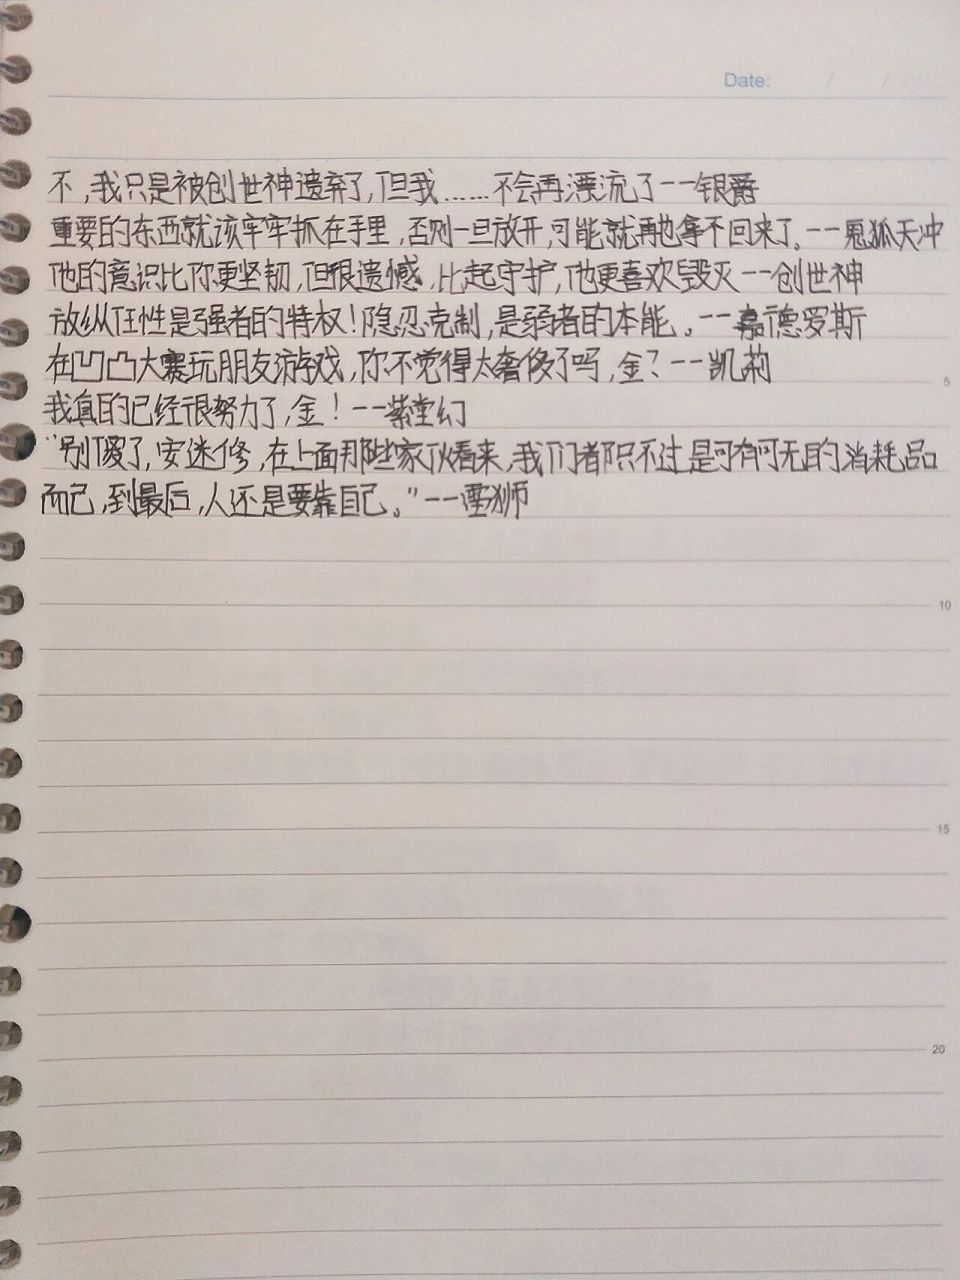 Date: / /
不,我只是被创世神遗弃了,但我……不会再漂流了--银爵
重要的东西就该牢牢抓在手里,否则一旦放开,可能就再也拿不回来了。--鬼狐天冲
他的意识比你更坚韧,但很遗憾,比起守护,他更喜欢毁灭--创世神
放纵任性是强者的特权!隐忍克制,是弱者的本能。--嘉德罗斯
在凹凸大赛玩朋友游戏,你不觉得太奢侈了吗,金?--凯莉
5
我真的已经很努力了,金!--紫堂幻
“别傻了,安迷修,在上面那些家伙看来,我们都只不过是可有可无的消耗品
而已,到最后,人还是要靠自己。”--雷狮
10
15
20